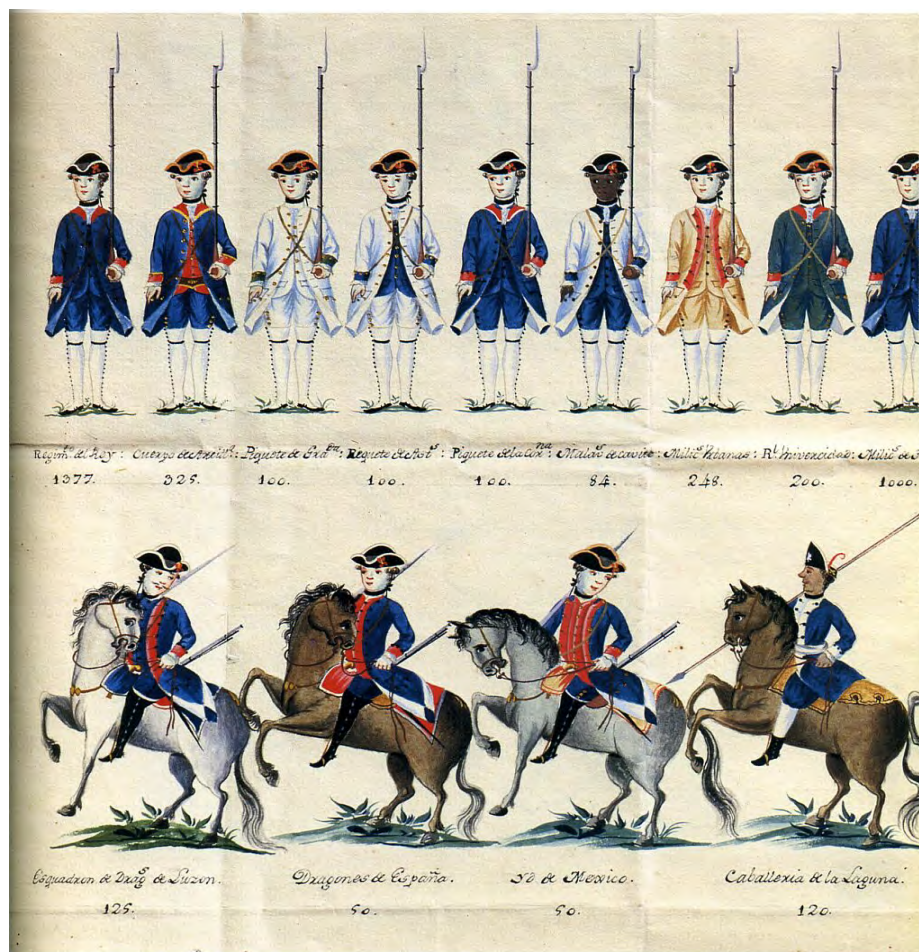 Regim.to del Rey : Cuerpo de Artill.a : Piquete de Gra.ros : Piquete de Ast.s : Piquete de la Cor.na : Malav.s de Cavite : Milic.s Urbanas : R.l Universidad : Milic.s de
1377. 325. 100. 100. 100. 84. 248. 200. 1000.
Esquadron de Drag.s de Luzon. Dragones de España. Yd. de Mexico. Caballeria de la Laguna.
125. 50. 50. 120.